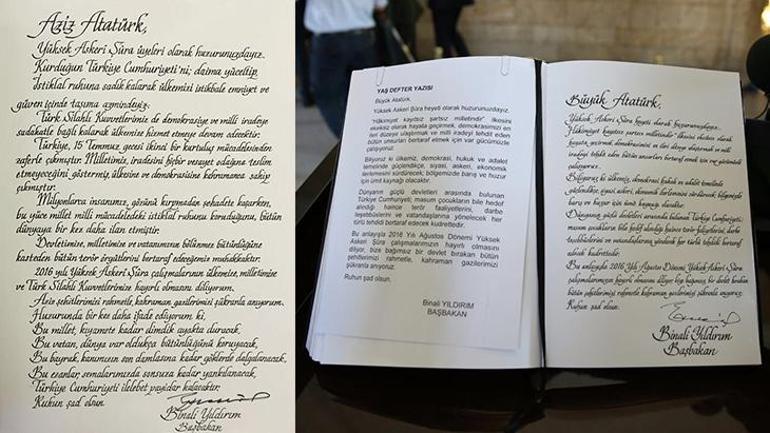 Aziz Atatürk,
Yüksek Askeri Şûra üyeleri olarak huzurunuzdayız.
Kurduğun Türkiye Cumhuriyeti'ni; daima yüceltip,
İstiklal ruhuna sadık kalarak ülkemizi istikbale emniyet ve
güven içinde taşıma azmindeyiz.
Türk Silahlı Kuvvetlerimiz de demokrasiye ve milli iradeye
sadakatle bağlı kalarak ülkemize hizmet etmeye devam edecektir.
Türkiye, 15 Temmuz gecesi ikinci bir kurtuluş mücadelesinden
zaferle çıkmıştır. Milletimiz, iradesini hiçbir vesayet odağına teslim
etmeyeceğini göstermiş, ülkesine ve demokrasisine kahramanca sahip
çıkmıştır.
Milyonlarca insanımız, gönüni kırpmadan şehadete koşarken,
bu yüce millet milli mücadeledeki istiklal ruhunu koruduğunu, bütün
dünyaya bir kez daha ilan etmiştir.
Devletimize, milletimize ve vatanımızın bölünmez bütünlüğüne
kasteden bütün terör örgütlerini bertaraf edeceğimiz muhakkaktır.
2016 yılı Yüksek Askeri Şûra çalışmalarının ülkemize, milletimize
ve Türk Silahlı Kuvvetlerimize hayırlı olmasını diliyorum.
Aziz şehitlerimizi rahmetle, kahraman gazilerimizi şükranla anıyorum.
Huzurunda bir kez daha ifade ediyorum ki,
Bu millet, kıyamete kadar dimdik ayakta duracak,
Bu vatan, dünya var oldukça bütünlüğünü koruyacak,
Bu bayrak, kanımızın son damlasına kadar göklerde dalgalanacak,
Bu ezanlar, semalarımızda sonsuza kadar yankılanacak,
Türkiye Cumhuriyeti ilelebet payidar kalacaktır.
Ruhun şad olsun.
Binali Yıldırım
Başbakan
YAŞ DEFTER YAZISI
Büyük Atatürk,
Yüksek Askeri Şura heyeti olarak huzurunuzdayız.
"Hâkimiyet kayıtsız şartsız milletindir" ilkesini
eksiksiz olarak hayata geçirmek, demokrasimizi en
ileri düzeye ulaştırmak ve milli iradeyi tehdit eden
bütün unsurları bertaraf etmek için var gücümüzle
çalışıyoruz.
Biliyoruz ki ülkemiz, demokrasi, hukuk ve adalet
temelinde güçlendikçe, siyasi, askeri, ekonomik
ilerlemesini sürdürecek; bölgemizde barış ve huzur
için ümit kaynağı olacaktır.
Dünyanın güçlü devletleri arasında bulunan
Türkiye Cumhuriyeti; masum çocukların bile hedef
alındığı haince terör faaliyetlerini, darbe
teşebbüslerini ve vatandaşlarına yönelecek her
türlü tehdidi bertaraf edecek kudrettedir.
Bu anlayışla 2016 Yılı Ağustos Dönemi Yüksek
Askeri Şûra çalışmalarımızın hayırlı olmasını
diliyor, bize bağımsız bir devlet bırakan bütün
şehitlerimizi rahmetle, kahraman gazilerimizi
şükranla anıyoruz.
Ruhun şad olsun.
Binali YILDIRIM
BAŞBAKAN
Büyük Atatürk,
Yüksek Askeri Şûra heyeti olarak huzurunuzdayız.
"Hâkimiyet kayıtsız şartsız milletindir" ilkesini eksiksiz olarak
hayata geçirmek, demokrasimizi en ileri düzeye ulaştırmak ve milli
iradeyi tehdit eden bütün unsurları bertaraf etmek için var gücümüzle
çalışıyoruz.
Biliyoruz ki ülkemiz, demokrasi, hukuk ve adalet temelinde
güçlendikçe, siyasi, askeri, ekonomik ilerlemesini sürdürecek; bölgemizde
barış ve huzur için ümit kaynağı olacaktır.
Dünyanın güçlü devletleri arasında bulunan Türkiye Cumhuriyeti;
masum çocukların bile hedef alındığı haince terör faaliyetlerini, darbe
teşebbüslerini ve vatandaşlarına yönelecek her türlü tehdidi bertaraf
edecek kudrettedir.
Bu anlayışla 2016 Yılı Ağustos Dönemi Yüksek Askeri Şûra
çalışmalarımızın hayırlı olmasını diliyor, bize bağımsız bir devlet bırakan
bütün şehitlerimizi rahmetle, kahraman gazilerimizi şükranla anıyoruz.
Ruhun şad olsun.
Binali Yıldırım
Başbakan